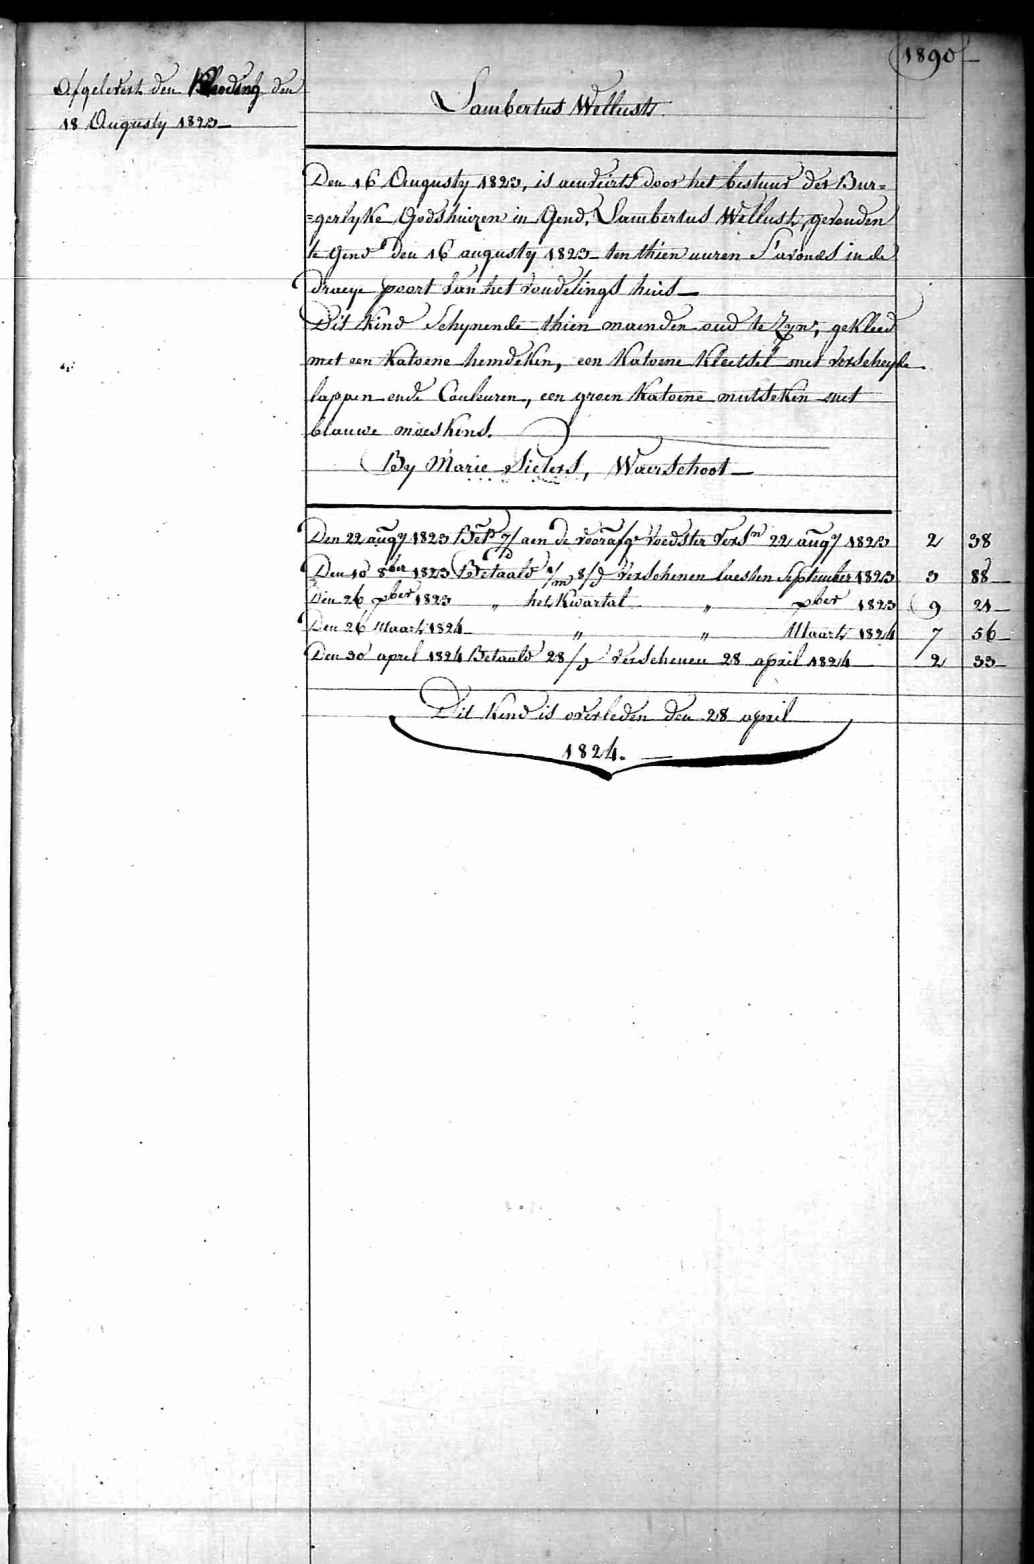 1890
Afgelevert den Kleeding den
18 Augusty 1823
Lambertus Wellust
Den 16 Augusty 1823, is aenveirt door het bestuur der Bur=
=gerlyke Godshuizen in Gend, Lambertus Wellust, gevonden
te Gend den 16 augusty 1823 ten thien uuren S'avonds in de
draeye poort van het vondelings huis
Dit Kind Schynende thien maenden oud te Zyn, gekleed
met een Katoene hemdeken, een Katoene Kleedsel met verscheyde
lappen ende Couleuren, een groen Katoene mutseken met
blauwe moeskens.
By Marie Sielers, Waerschoot
Den 22 augy 1823 Bet. 7/ aen de voorafge voedster Versn 22 augy 1823 2 38
Den 10 8ber 1823 Betaald 1/m 8/d Verschenen laesten September 1823 3 88
Den 26 xber 1823 „ het Kwartal „ xber 1823 9 21
Den 26 Maart 1824 „ „ Maart 1824 7 56
Den 30 april 1824 Betaald 28/d Verschenen 28 april 1824 2 33
Dit Kind is overleden den 28 april
1824.